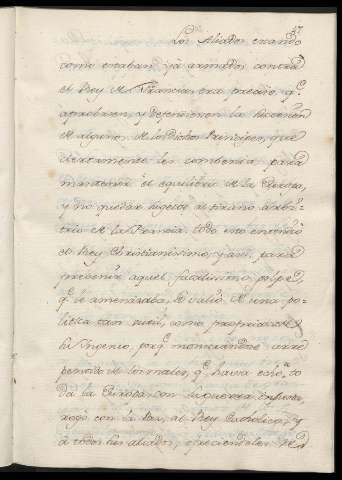 37
Los Aliados quando
como estaban ya armados contra
el Rey de Francia, era preciso, q.^e
aprobasen, y defendiesen la succesion
de alguno de los dichos Principes, que
ciertamente les combenia para
mantener el equilibrio de la Europa,
y no quedar sugetos al tirano arbi-
trio de la Francia. Todo esto entendió
el Rey Christianissimo, y assi para
prebenir aquel facilissimo golpe,
q.^e le amenazaba, se valio de una po-
litica tan sutil, como propria de
su Ingenio, porq.^e mostrandose arre-
pentido de los males, q.^e havia echo a to-
da la Europa con su guerra injusta,
rogó con la Paz, al Rey Catholico, y
a todos sus aliados, ofreciendoles